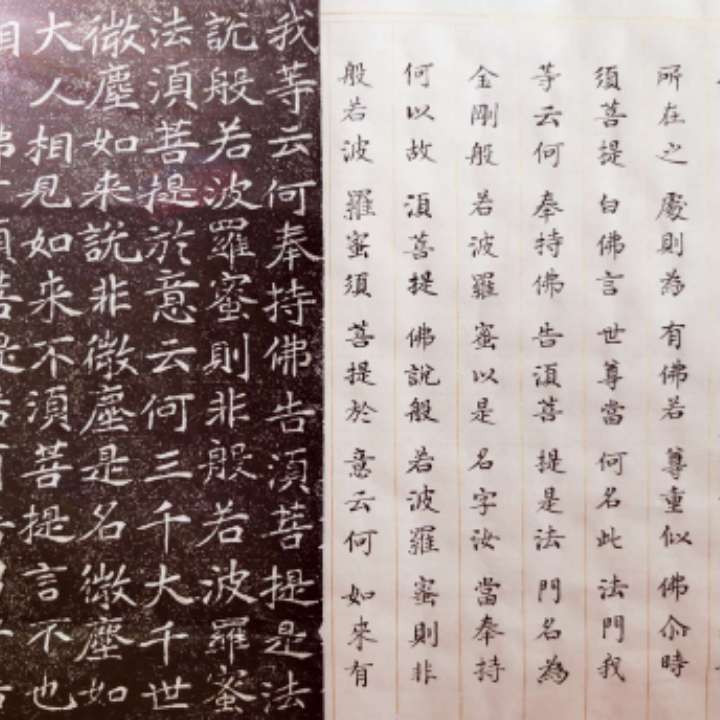 所在之處則為有佛若尊重似佛尒時
須菩提白佛言世尊當何名此法門我
等云何奉持佛告湏菩提是法門名為
金剛般若波羅蜜以是名字汝當奉持
何以故湏菩提佛說般若波羅蜜則非
般若波羅蜜須菩提於意云何如来有
我等云何奉持佛告湏菩提是法
說般若波羅蜜則非般若波羅蜜
法湏菩提於意云何三千大千世
微塵如来說非微塵是名微塵如
大人相見如来不湏菩提言不也